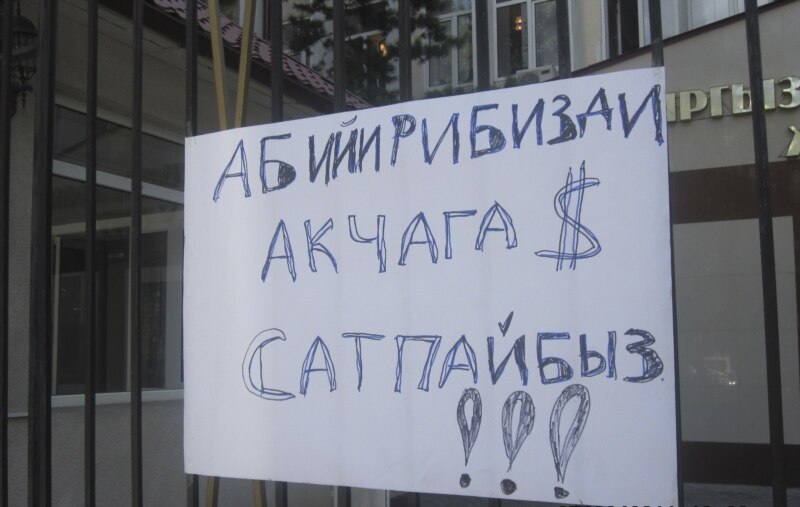 АБИЙИРИБИЗДИ
АКЧАГА $
САТПАЙБЫЗ
!!!
ЫРГЫЗ